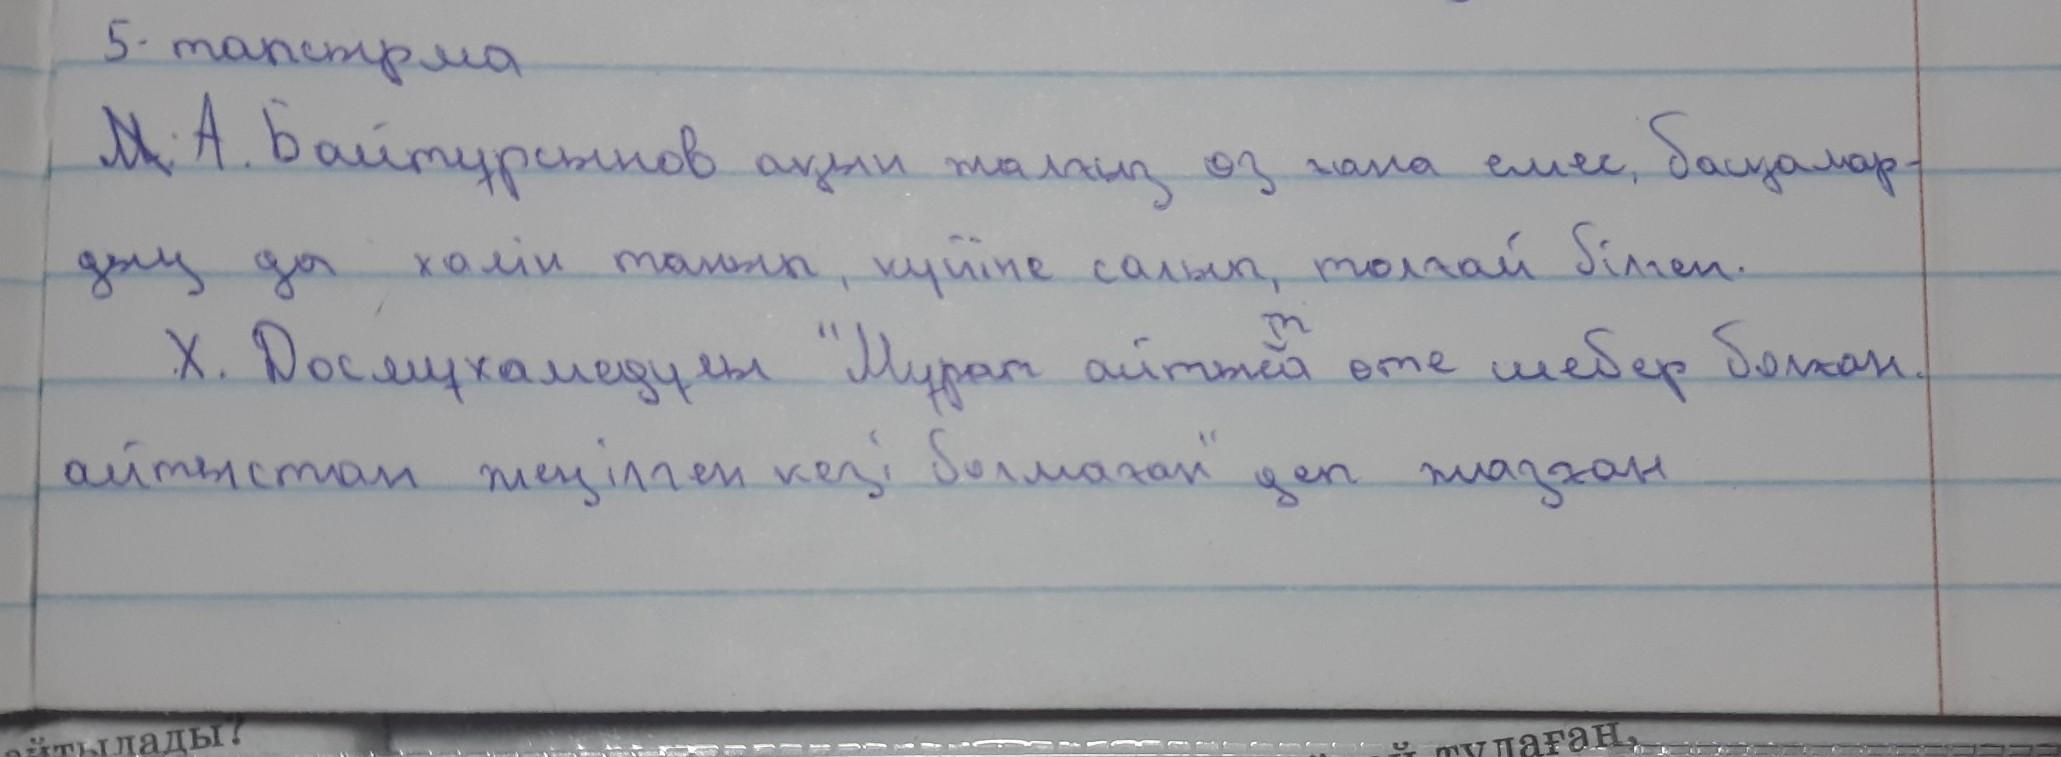 5- тапсырма
А. Байтұрсынов ақын жалғыз өз ғана емес, басқалар-
дың да халін танып, күйіне салып, толғай білген.
Х. Досмұхамедұлы "Мұрат айтысқа өте шебер болған.
айтыстан жеңілген кезі болмаған" деп жазған
айтылады?
тулаған,